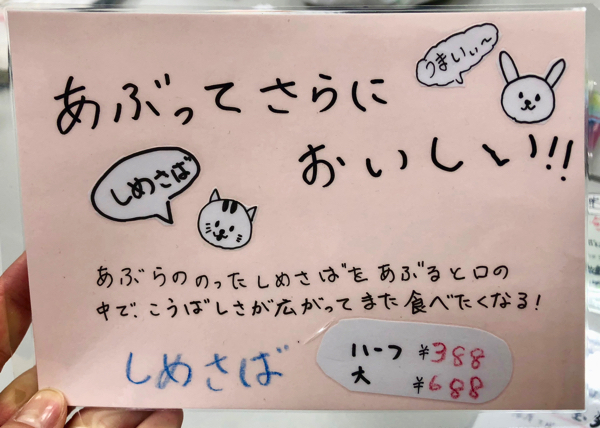 うまいぃ〜
あぶってさらに
おいしい!!
しめさば
あぶらののったしめさばをあぶると口の
中で、こうばしさが広がってまた食べたくなる!
しめさば
ハーフ ¥388
大 ¥688